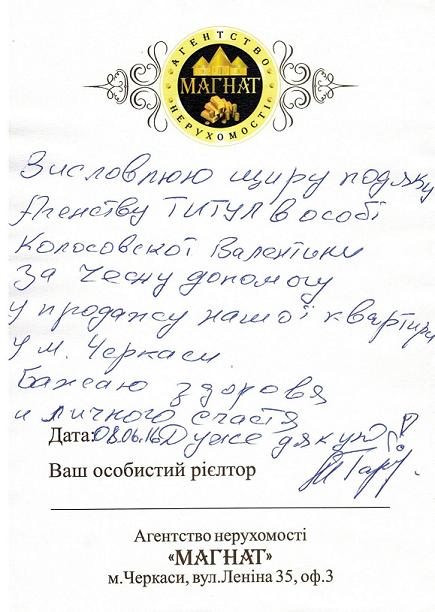 АГЕНТСТВО
МАГНАТ
НЕРУХОМОСТІ
Висловлюю щиру подяку
Агенству ТИТУЛ в особі
Колосовскої Валентини
За чесну допомогу
у продажу нашої квартири
у м. Черкаси
Бажаю здоровя
и личного счастя
Дата: 08.06.16 Дуже дякую!
Ваш особистий рієлтор
Агентство нерухомості
«МАГНАТ»
м.Черкаси, вул.Леніна 35, оф.3